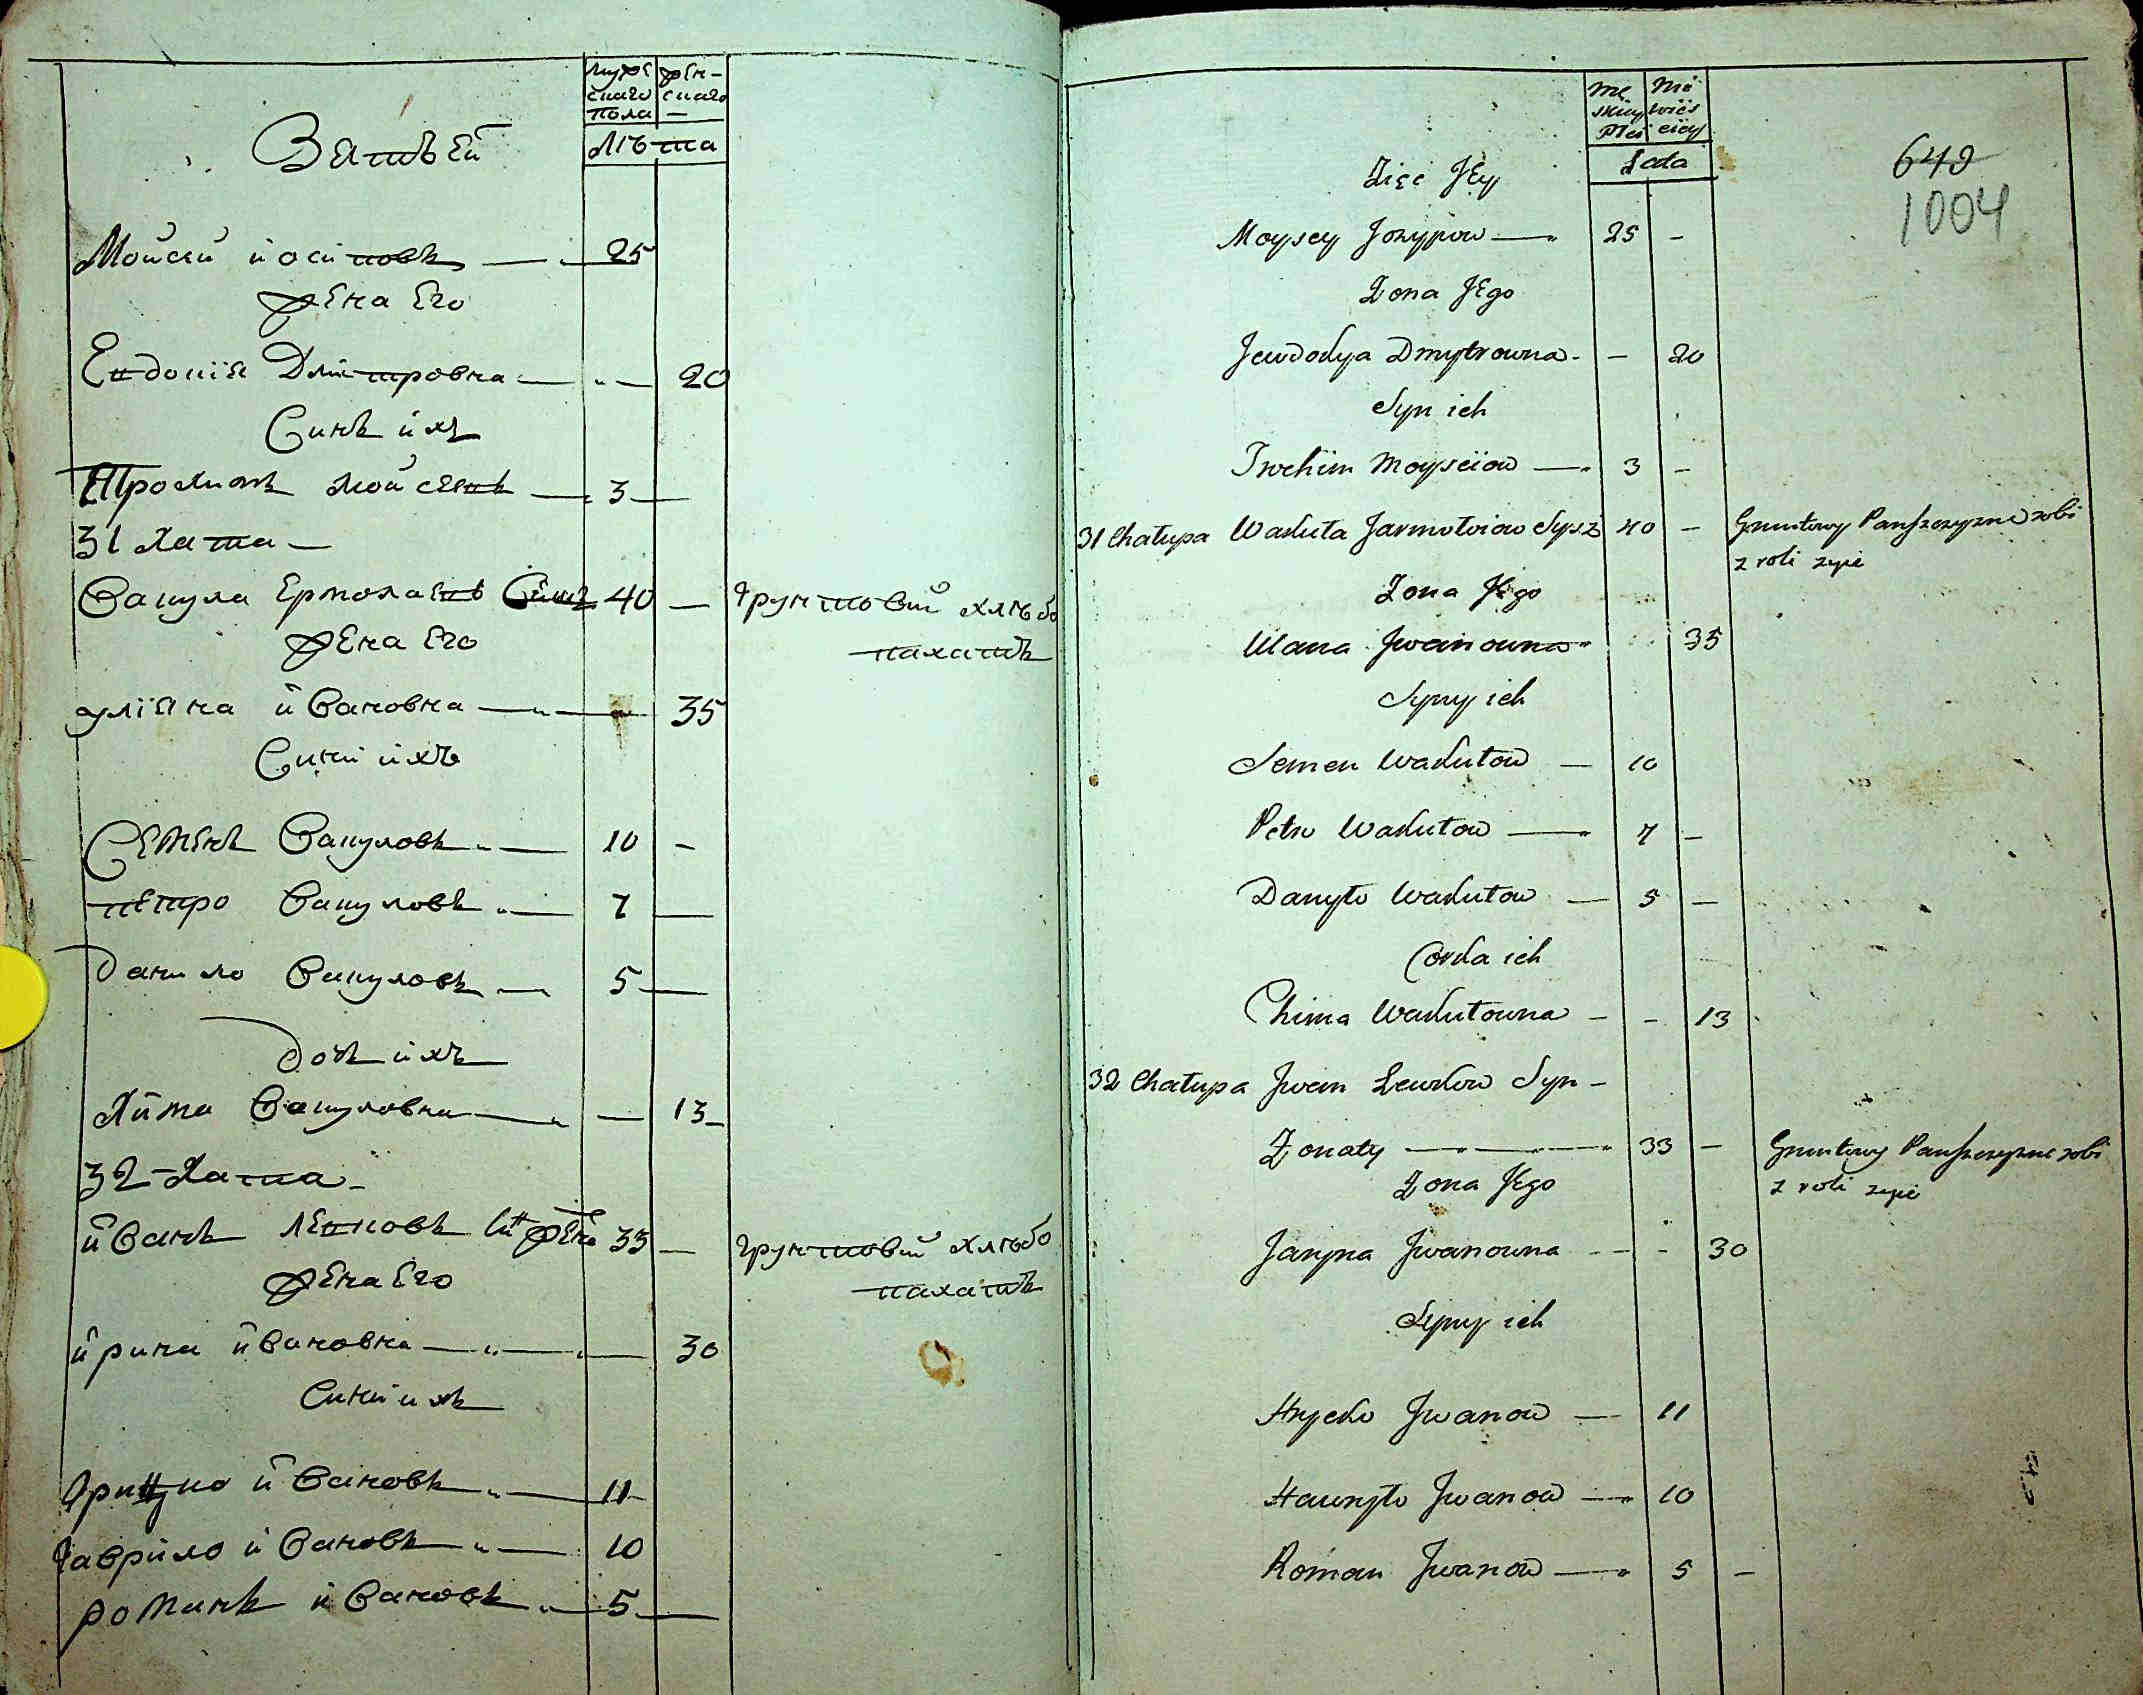 муже жен-
скаго скаго
пола —
Лѣта
Зятъ ей
Мойсей йосиповъ — 25
жена Его
Евдокія Дмитровна — 20
Синъ йхъ
Трохимъ Мойсеевъ — 3 —
31 Хата —
Вакула Ермолаевъ Синъ 40 — грунтовий хлѣбо
пахатъ
жена Его
уліяна йвановна — 35
Сини йхъ
Семенъ Вакуловъ — 10 —
петро Вакуловъ — 7 —
данило Вакуловъ — 5 —
дочь йхъ
Хима Вакуловна — — 13
32 Хата —
йванъ левковъ 33 — грунтовий хлѣбо
пахатъ
жена Его
йрина йвановна — 30
Сини ихъ
грицко йвановъ — 11
гаврило йвановъ — 10
романъ йвановъ — 5 —
Mę Nie
skiey wies
Płci ciey
Lata
649
1004
Zięć Jey
Moysey Jozypow — 25 —
Zona Jego
Jewdokya Dmytrowna — — 20
Syn ich
Trochim Moyseiow — 3 —
31 Chałupa Wakuła Jarmołoiow Syn ż 40 — Gruntowy Panszczyzne robi
z roli zyie
Zona Jego
Ulana Jwanowna 35
Syny ich
Semen Wakułow — 10
Petro Wakułow — 7 —
Danyło Wakułow — 5 —
Corka ich
Chima Wakułowna — — 13
32 Chałupa Jwan Lewkow Syn —
Zonaty — 33 — Gruntowy Panszczyzne robi
z roli zyie
Zona Jego
Jaryna Jwanowna — — 30
Syny ich
Hrycko Jwanow — 11
Hawryło Jwanow — 10
Roman Jwanow — 5 —